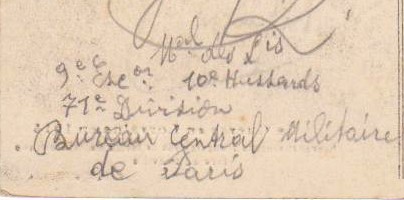 Mal des Lis
9e Escon 10e Hussards
71e Division
Bureau Central Militaire
de Paris